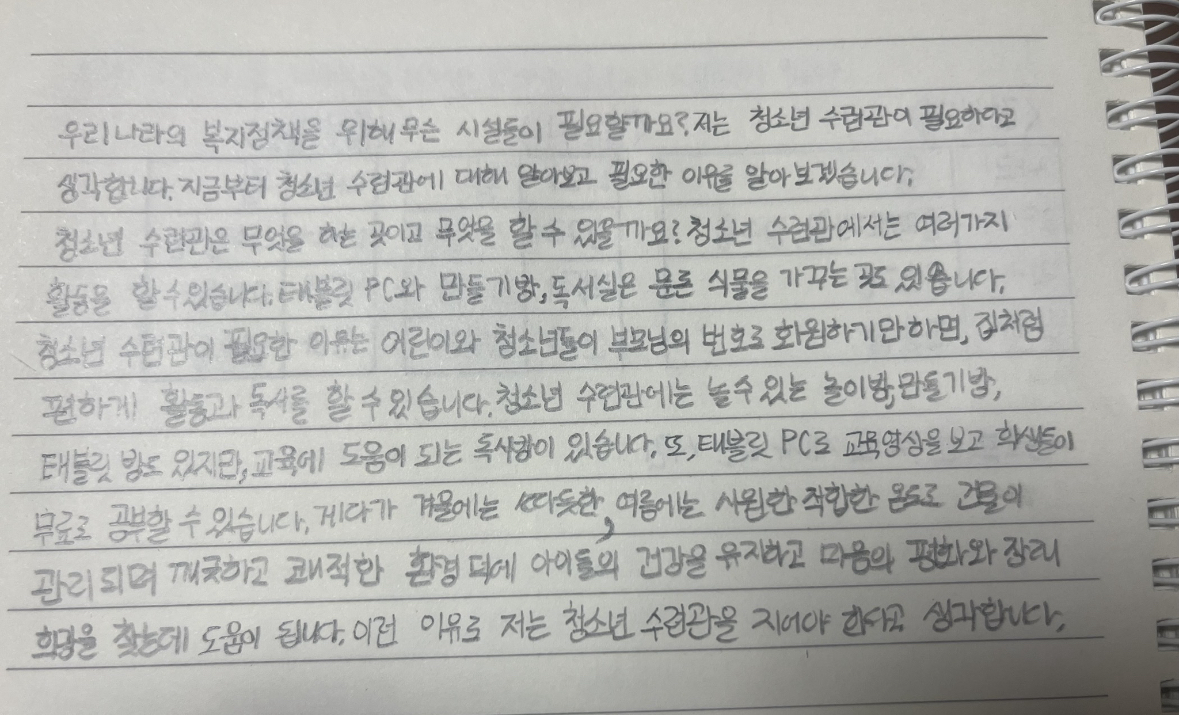 우리나라의 복지정책을 위해 무슨 시설들이 필요할까요? 저는 청소년 수련관이 필요하다고
생각합니다. 지금부터 청소년 수련관에 대해 알아보고 필요한 이유를 알아보겠습니다.
청소년 수련관은 무엇을 하는 곳이고 무엇을 할 수 있을까요? 청소년 수련관에서는 여러가지
활동을 할 수 있습니다. 태블릿 PC와 만들기방, 독서실은 물론 식물을 가꾸는 곳도 있습니다.
청소년 수련관이 필요한 이유는 어린이와 청소년들이 부모님의 번호로 회원하기만 하면, 집처럼
편하게 활동과 독서를 할 수 있습니다. 청소년 수련관에는 놀 수 있는 놀이방, 만들기방,
태블릿 방도 있지만, 교육에 도움이 되는 독서방이 있습니다. 또, 태블릿 PC로 교육영상을 보고 학생들이
무료로 공부할 수 있습니다. 게다가 겨울에는 따듯한, 여름에는 시원한 적합한 온도로 건물이
관리되며 깨끗하고 쾌적한 환경 덕에 아이들의 건강을 유지하고 마음의 평화와 장래
희망을 찾는데 도움이 됩니다. 이런 이유로 저는 청소년 수련관을 지어야 한다고 생각합니다.